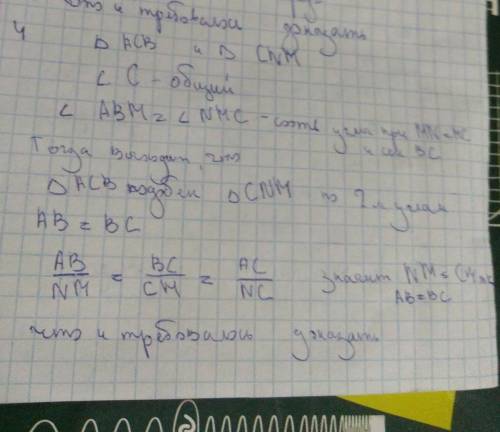 что и требовалось доказать
4
△ ACB и △ CNM
∠ C - общий
∠ ABM = ∠ NMC - соотв углы при и сек BC
Тогда выходит, что
△ ACB подобен △ CNM по 2м углам
AB = BC
AB/NM = BC/CM = AC/NC значит NM = CM
AB=BC
что и требовалось доказать